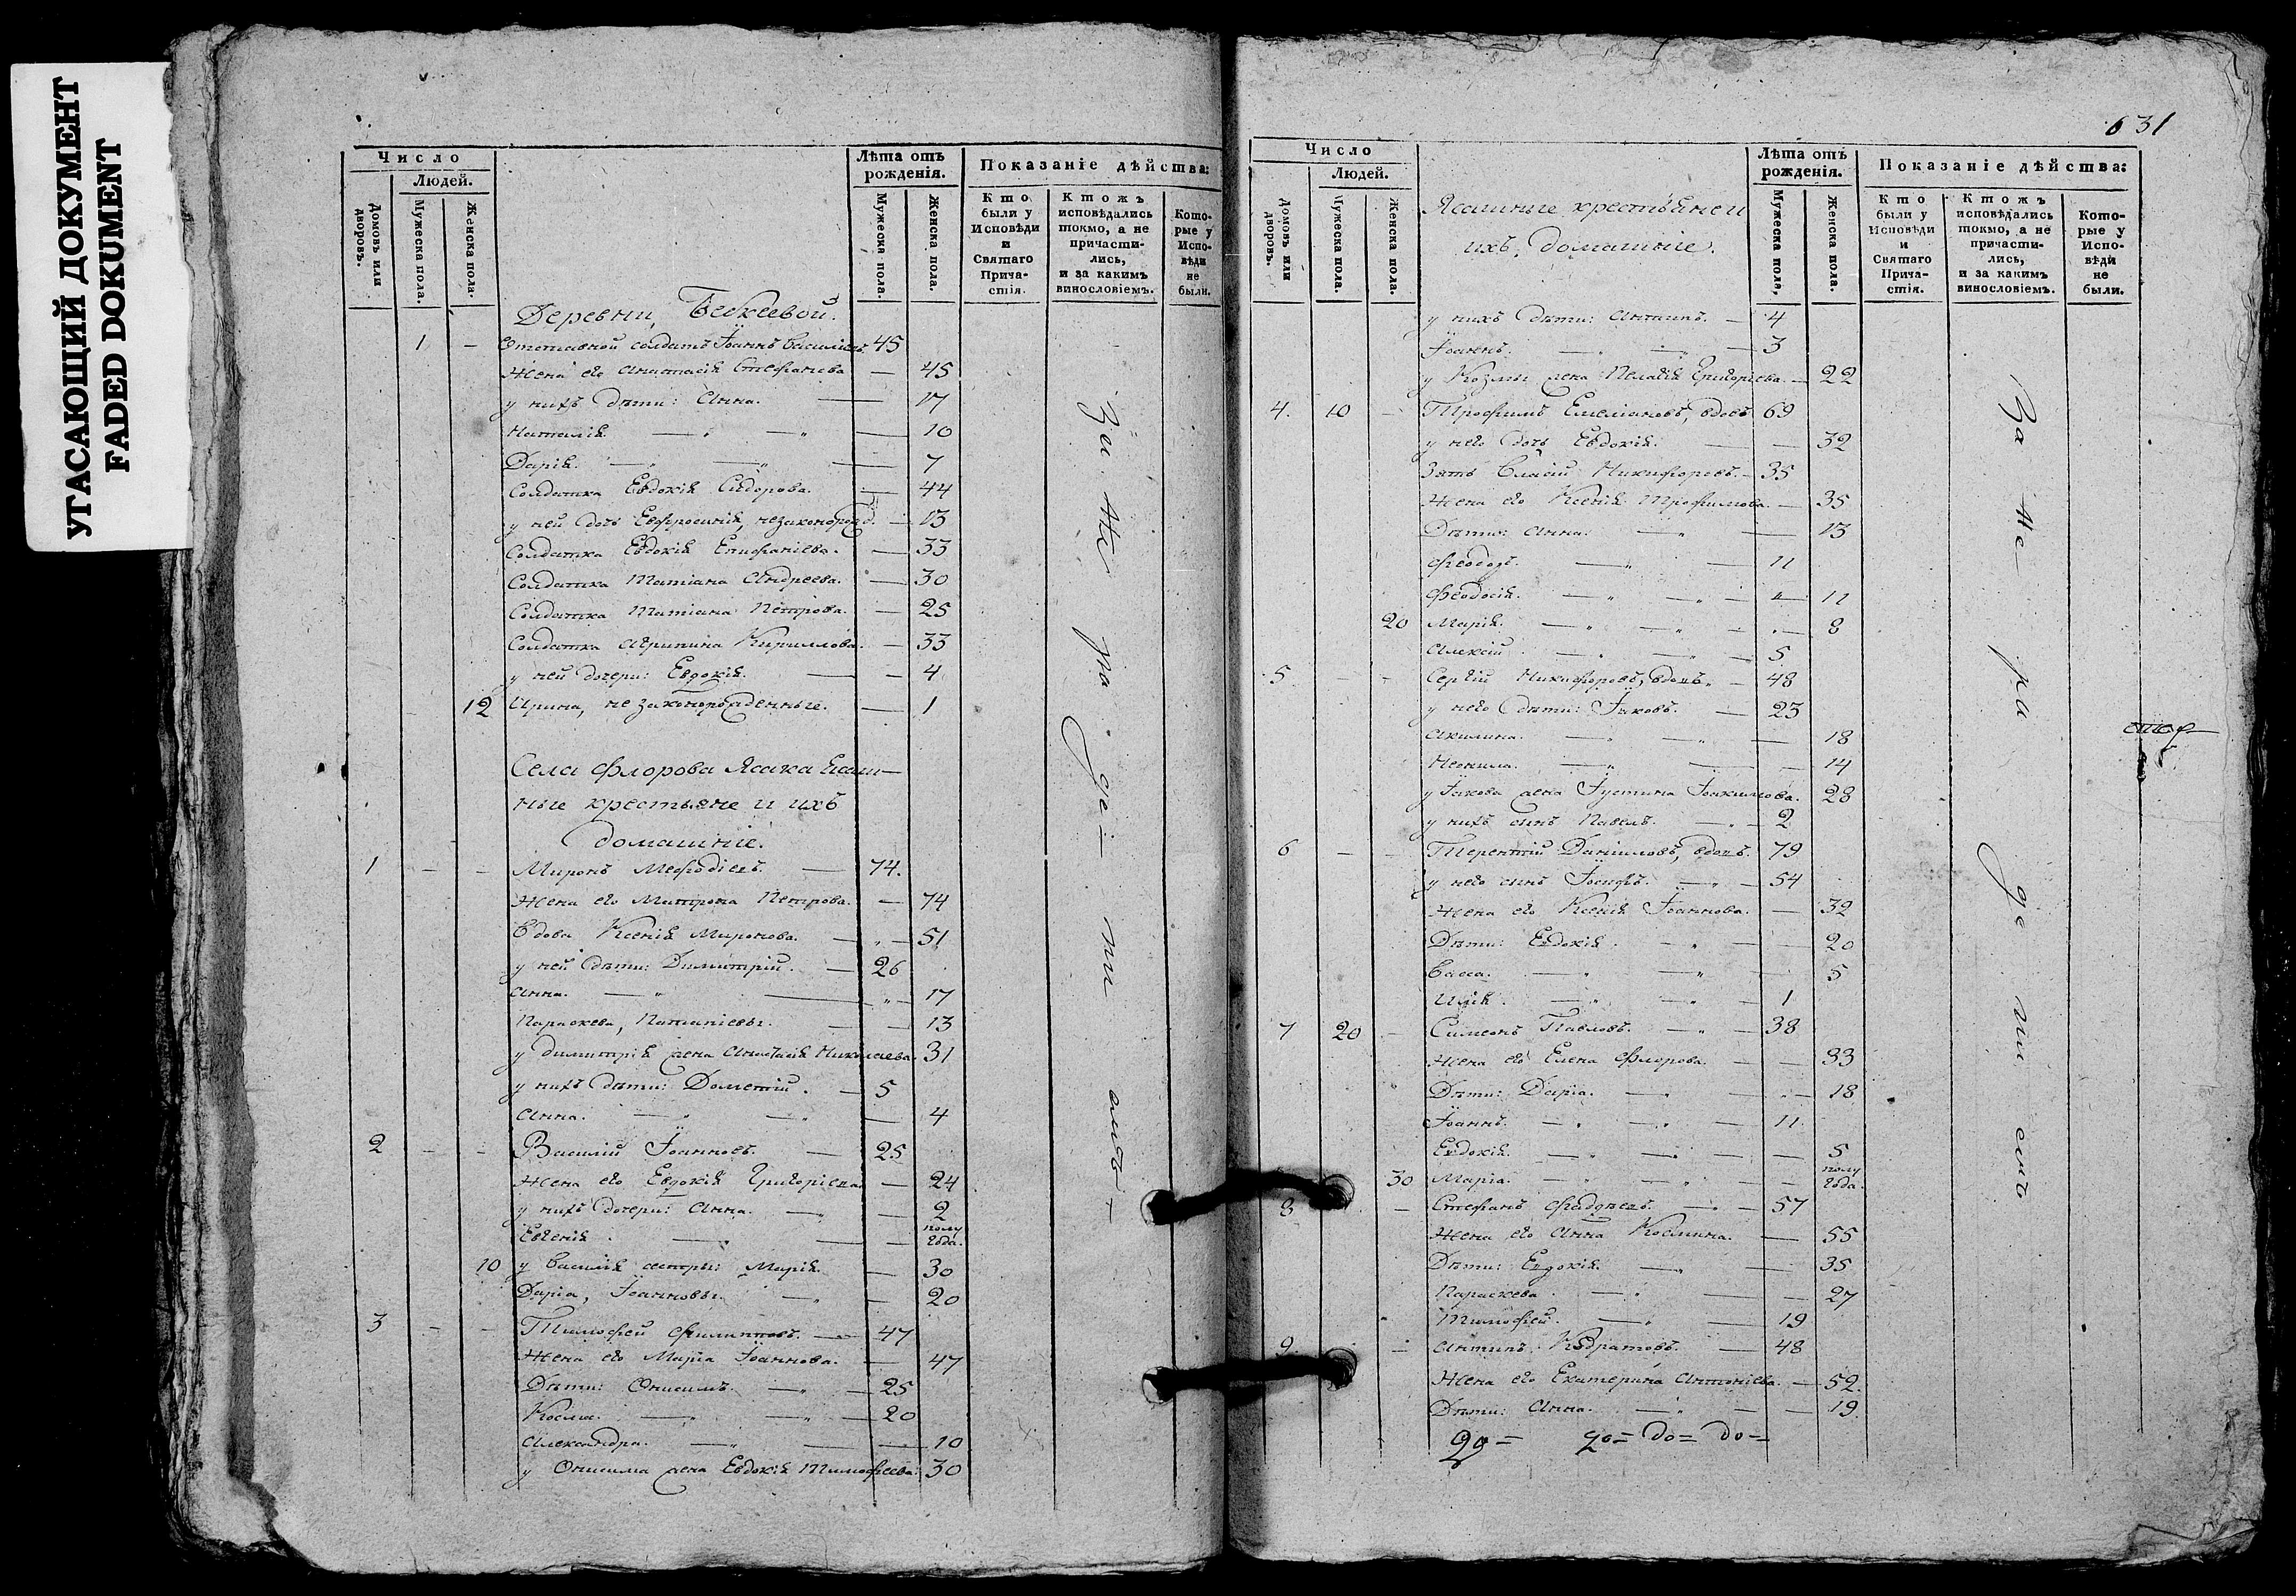 УГАСАЮЩИЙ ДОКУМЕНТ
FADED DOKUMENT
Число
Людей.
Домовъ или дворовъ.
Мужеска пола.
Женска пола.
Лѣта отъ рожденія.
Мужеска пола.
Женска пола.
Показаніе дѣйства:
Кто были у Исповѣди и Святаго Причастія.
Ктожъ исповѣдались токмо, а не причастились, и за какимъ винословіемъ.
Которые у Исповѣди не были.
Деревни
1 — Отставной солдатъ Іоаннъ Васильевъ. 45
Жена его Анастасія Стефанова — 45
у нихъ дѣти: Анна. — 17
Наталія. — 10
Дарія. — 7
Солдатка Евдокія Сидорова. — 44
у ней дочь Евфросинія, незаконорожд. — 13
Солдатка Евдокія Епифаніева. — 33
Солдатка Татіана Андреева. — 30
Солдатка Татіана Петрова. — 25
Солдатка Агрипина Кириллова. — 33
у ней дочери: Евдокія. — 4
12 Ирина, незаконорожденные. — 1
Села Флорова Ясака Ясаш-
ные крестьяне и ихъ
домашніе.
1 — — Миронъ Мефодіевъ. — 74.
Жена его Матрона Петрова. — 74
Вдова Ксенія Миронова. — 51
у ней дѣти: Димитрій. — 26
Анна. — 17
Параскева, — 13
у Димитрія жена Анастасія Николаева. 31
у нихъ дѣти: Дометій. — 5
Анна. — 4
2 — — Василій Іоанновъ. — 25
Жена его Евдокія Григоріева. — 24
у нихъ дочери: Анна. — 2
Евгенія. — полу года.
10 у Василія сестры: Марія. — 30
Дарія, Іоанновы. — 20
3 — — Тимофей Филипповъ. — 47
Жена его Марія Іоаннова. — 47
Дѣти: Онисимъ. — 25
Косма. — 20
Александра. — 10
у Онисима жена Евдокія Тимофеева. 30
631
Число
Людей.
Домовъ или дворовъ.
Мужеска пола.
Женска пола.
Ясашные крестьяне и
ихъ домашніе.
Лѣта отъ рожденія.
Мужеска пола,
Женска пола.
Показаніе дѣйства:
Кто были у Исповѣди и Святаго Причастія.
Ктожъ исповѣдались токмо, а не причастились, и за какимъ винословіемъ.
Которые у Исповѣди не были.
у нихъ дѣти: Антипъ. — 4
Іоаннъ. — 3
у Козмы жена Пелагія Григоріева. — 22
4. 10 — Трофимъ Емеліановъ, вдовъ 69
у него дочь Евдокія. — 32
Зять Власій Никифоровъ. — 35
Жена его Ксенія Трофимова. — 35
Дѣти: Анна. — 13
Феодоръ. — 11
Феодосія. — 11
20 Марія. — 8
Алексій — 5
5 — — Сергій Никифоровъ, вдовъ. — 48
у него дѣти: Іаковъ. — 23
Акилина. — 18
Неонила. — 14
у Іакова жена Іустина Іоакимова. 28
у нихъ сынъ Павелъ. — 2
6 — — Терентій Даніиловъ, вдовъ. 79
у него сынъ Іосифъ. — 54
Жена его Ксенія Іоаннова. — 32
Дѣти: Евдокія. — 20
Васса. — 5
Илія. — 1
7 20 — Симеонъ Павловъ. — 38
Жена его Елена Флорова. — 33
Дѣти: Дарія. — 18
Іоаннъ. — 11
Евдокія. — 5
30 Марія. — полу года.
8 — Стефанъ — 57
Жена его Анна Космина. — 55
Дѣти: Евдокія. — 35
Параскева. — 27
Тимофей. — 19
9. — Антипъ Кодратовъ. — 48
Жена его Екатерина Антоніева. — 52.
Дѣти: Анна. — 19.